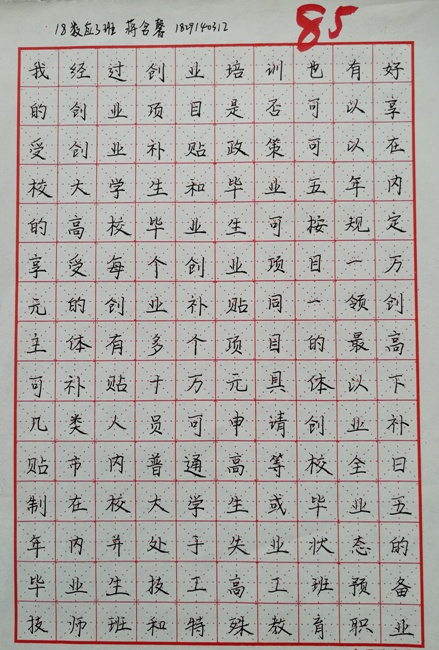 18数应3班 蒋含馨 1829140312
85
我经过创业培训也有好
的创业项目是否可以享
受创业补贴政策可以在
校大学生和毕业五年内
的高校毕业生可按规定
享受每个创业项目一万
元的创业补贴同一领创
主体有多个项目的最高
可补贴十万元具体以下
几类人员可申请创业补
贴市内普通高等校全日
制在校大学生或毕业五
年内并处于失业状态的
毕业生技工高工班预备
技师班和特殊教育职业